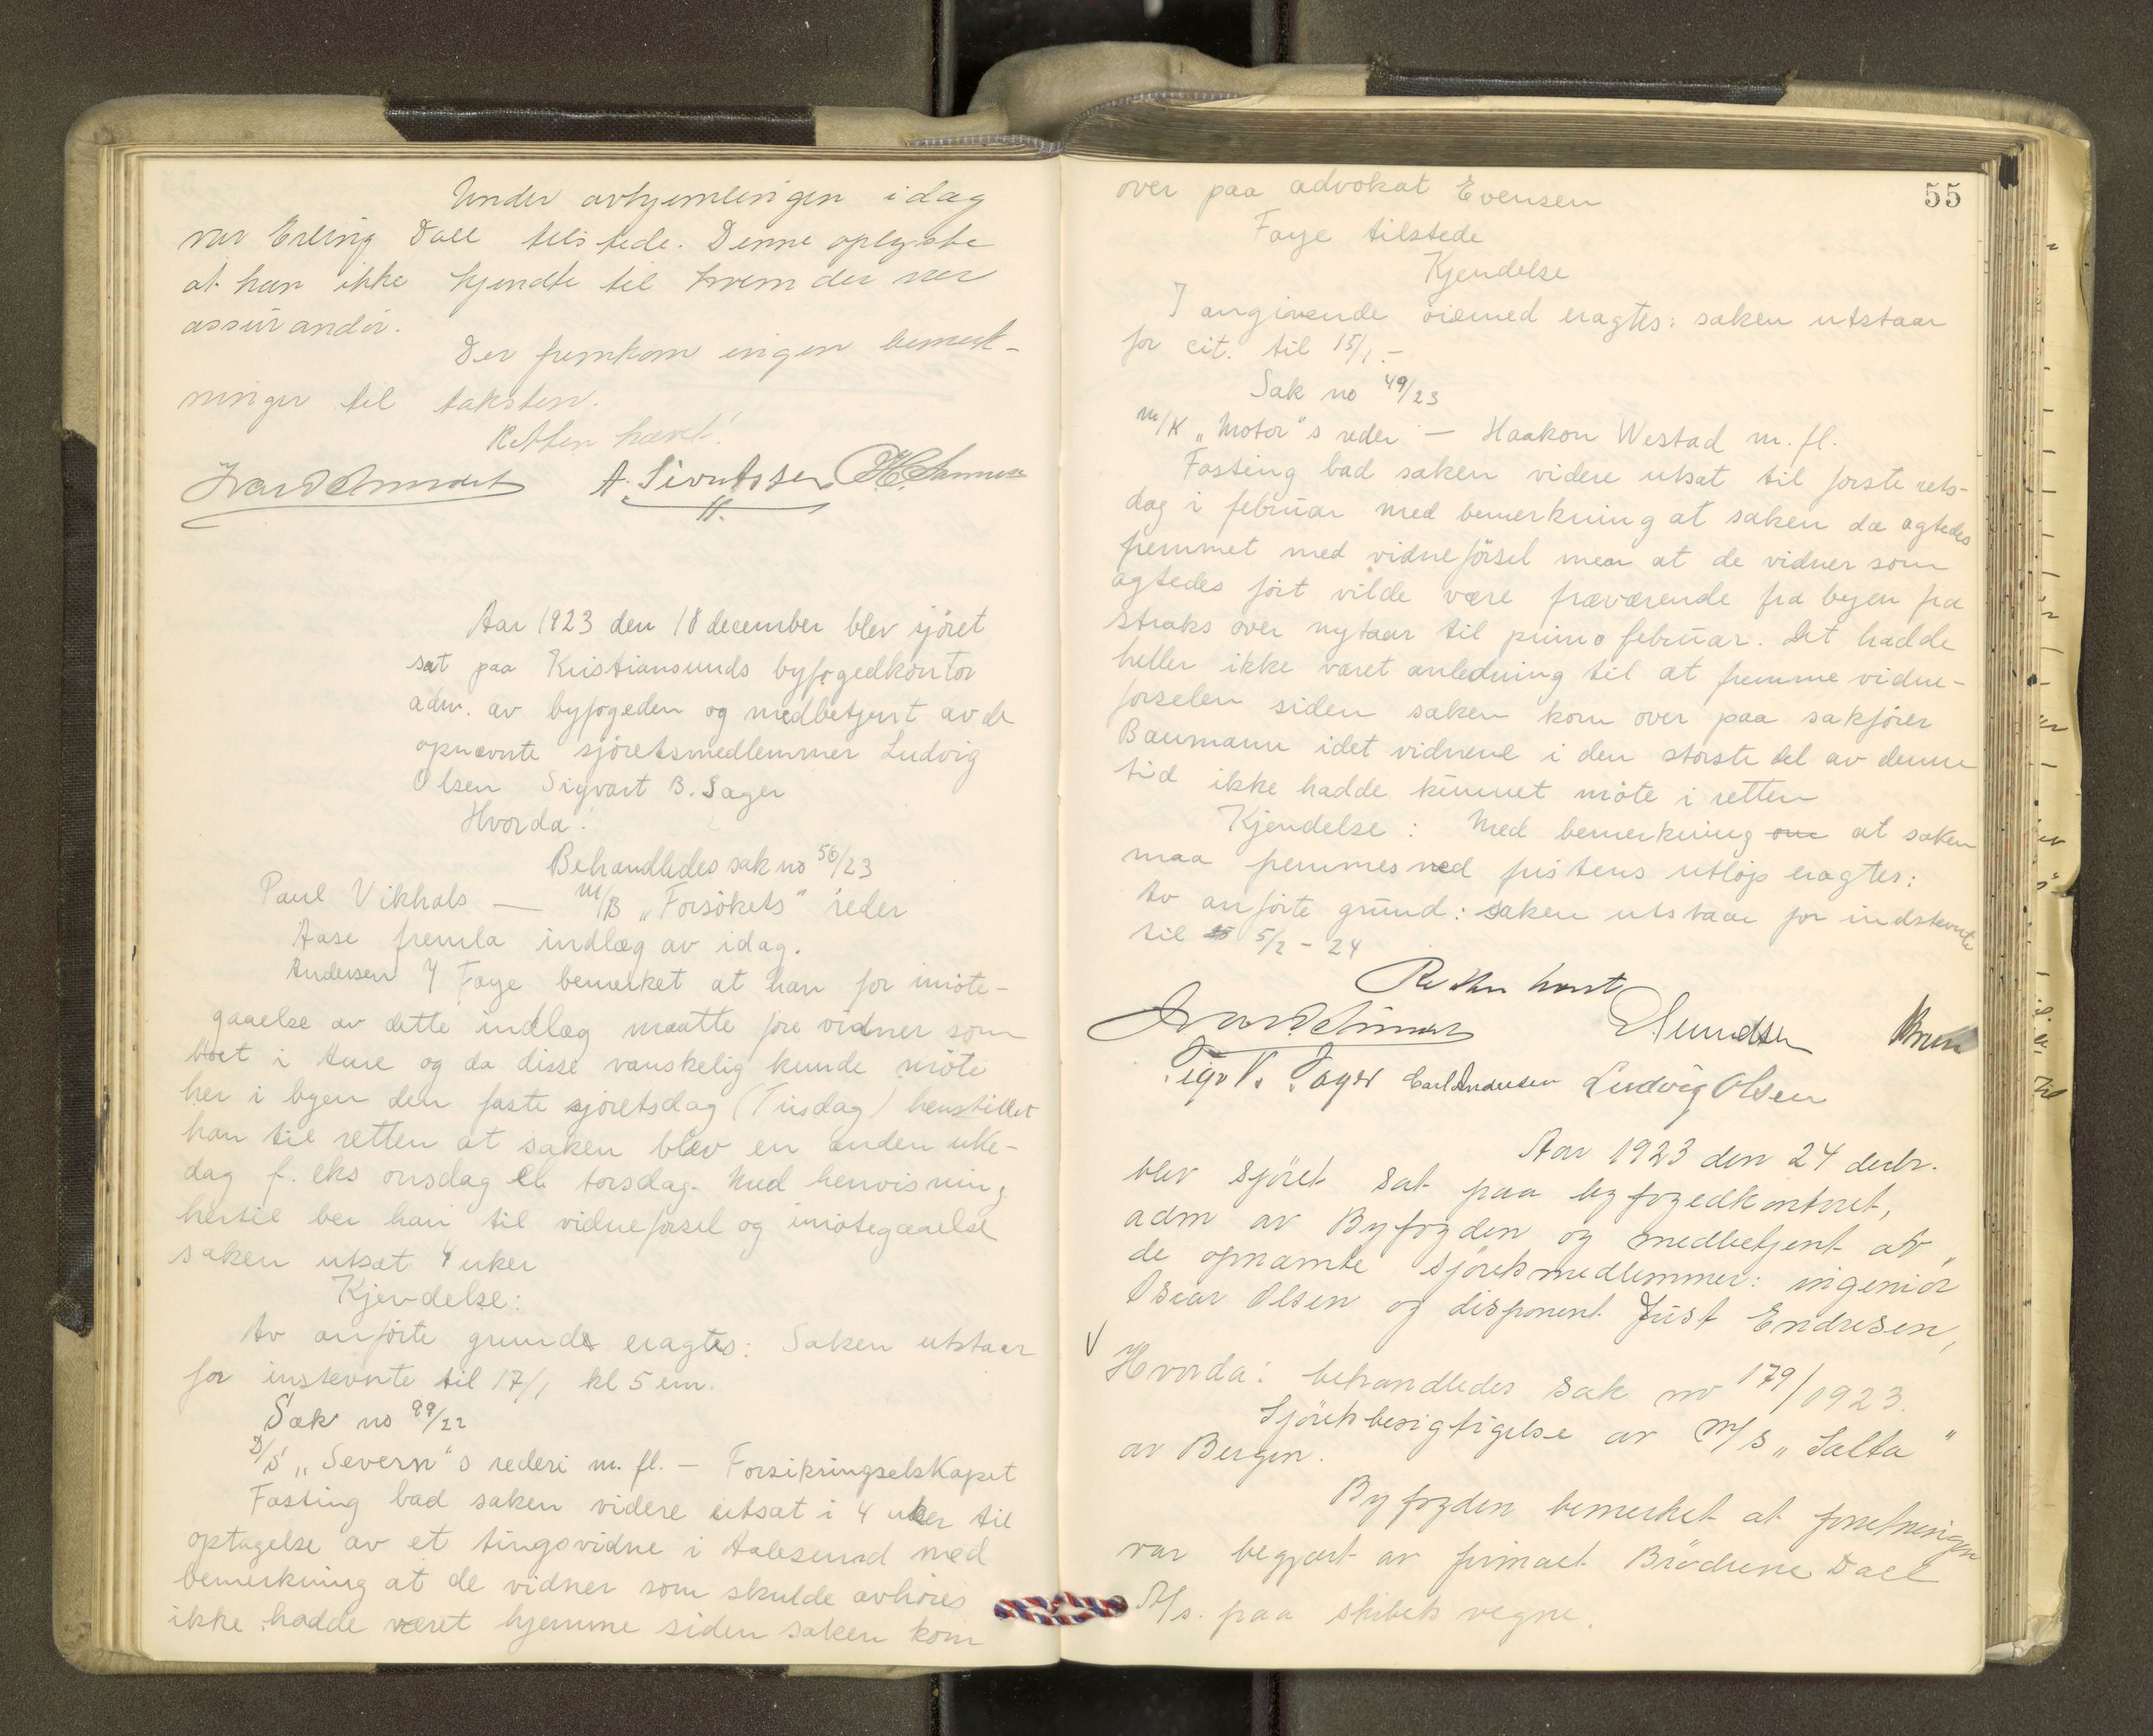 Under avhjemlingen idag
var Erling Dall tilstede. Denne oplyste
at han ikke kjendte til hvem der var
assurandør.
Der fremkom ingen bemerk-
ninger til taksten.
Retten hævet!
A. Sivertsen
Aar 1923 den 18 december blev sjöret
sat paa Kristiansunds byfogedkontor
adm. av byfogeden og medbetjent av de
opnævnte sjöretsmedlemmer Ludvig
Olsen Sigvart B. Sager
Hvorda!
Behandledes sak no 56/23
Paul Vikhals — M/B „Forsökets" reder
Aase fremla indlæg av idag.
Andersen f Faye bemerket at han for imöte-
gaaelse av dette indlæg maatte före vidner som
boet i Aure og da disse vanskelig kunde möte
her i byen den faste sjöretsdag (Tirsdag) henstillet
han til retten at saken blev en anden uke-
dag f. eks onsdag el. torsdag. Med henvisning
hertil ber han til vidneförsel og imötegaaelse
saken utsat 4 uker
Kjendelse:
Av anförte grunde eragtes: Saken utstaar
for instevnte til 17/1 kl 5 em.
Sak no 99/22
D/S „Severn"s rederi m. fl. — Forsikringselskapet
Fasting bad saken videre utsat i 4 uker til
optagelse av et tingsvidne i Aalesund med
bemerkning at de vidner som skulde avhöres
ikke hadde været hjemme siden saken kom
55
over paa advokat Evensen
Faye tilstede
Kjendelse
I angivende öiemed eragtes: saken utstaar
for cit. til 15/1.-
Sak no 49/23
M/K „Motor"s reder — Haakon Westad m. fl.
Fasting bad saken videre utsat til förste rets-
dag i februar med bemerkning at saken da agtedes
fremmet med vidneförsel men at de vidner som
agtedes fört vilde være fraværende fra byen fra
straks over nytaar til primo februar. Det hadde
heller ikke været anledning til at fremme vidne-
förselen siden saken kom over paa sakförer
Baumann idet vidnene i den störste del av denne
tid ikke hadde kunnet möte i retten
Kjendelse: Med bemerkning om at saken
maa fremmes ved fristens utlöp eragtes:
Av anförte grund: saken utstaar for indstevnte
til 5/2 - 24
Retten hævet
Sigv B. Sager Carl Andersen Ludvig Olsen
Aar 1923 den 24 decbr.
blev sjöret sat paa byfogedkontoret,
adm av Byfogden og medbetjent av
de opnævnte sjöretsmedlemmer: ingeniör
Oscar Olsen og disponent Just Endresen,
V
Hvorda: behandledes sak no 179/1923.
Sjöretsbesigtigelse av M/S „Salta"
av Bergen.
Byfogden bemerket at forretningen
var begjært av firmaet Brödrene Dall
A/s. paa skibets vegne.